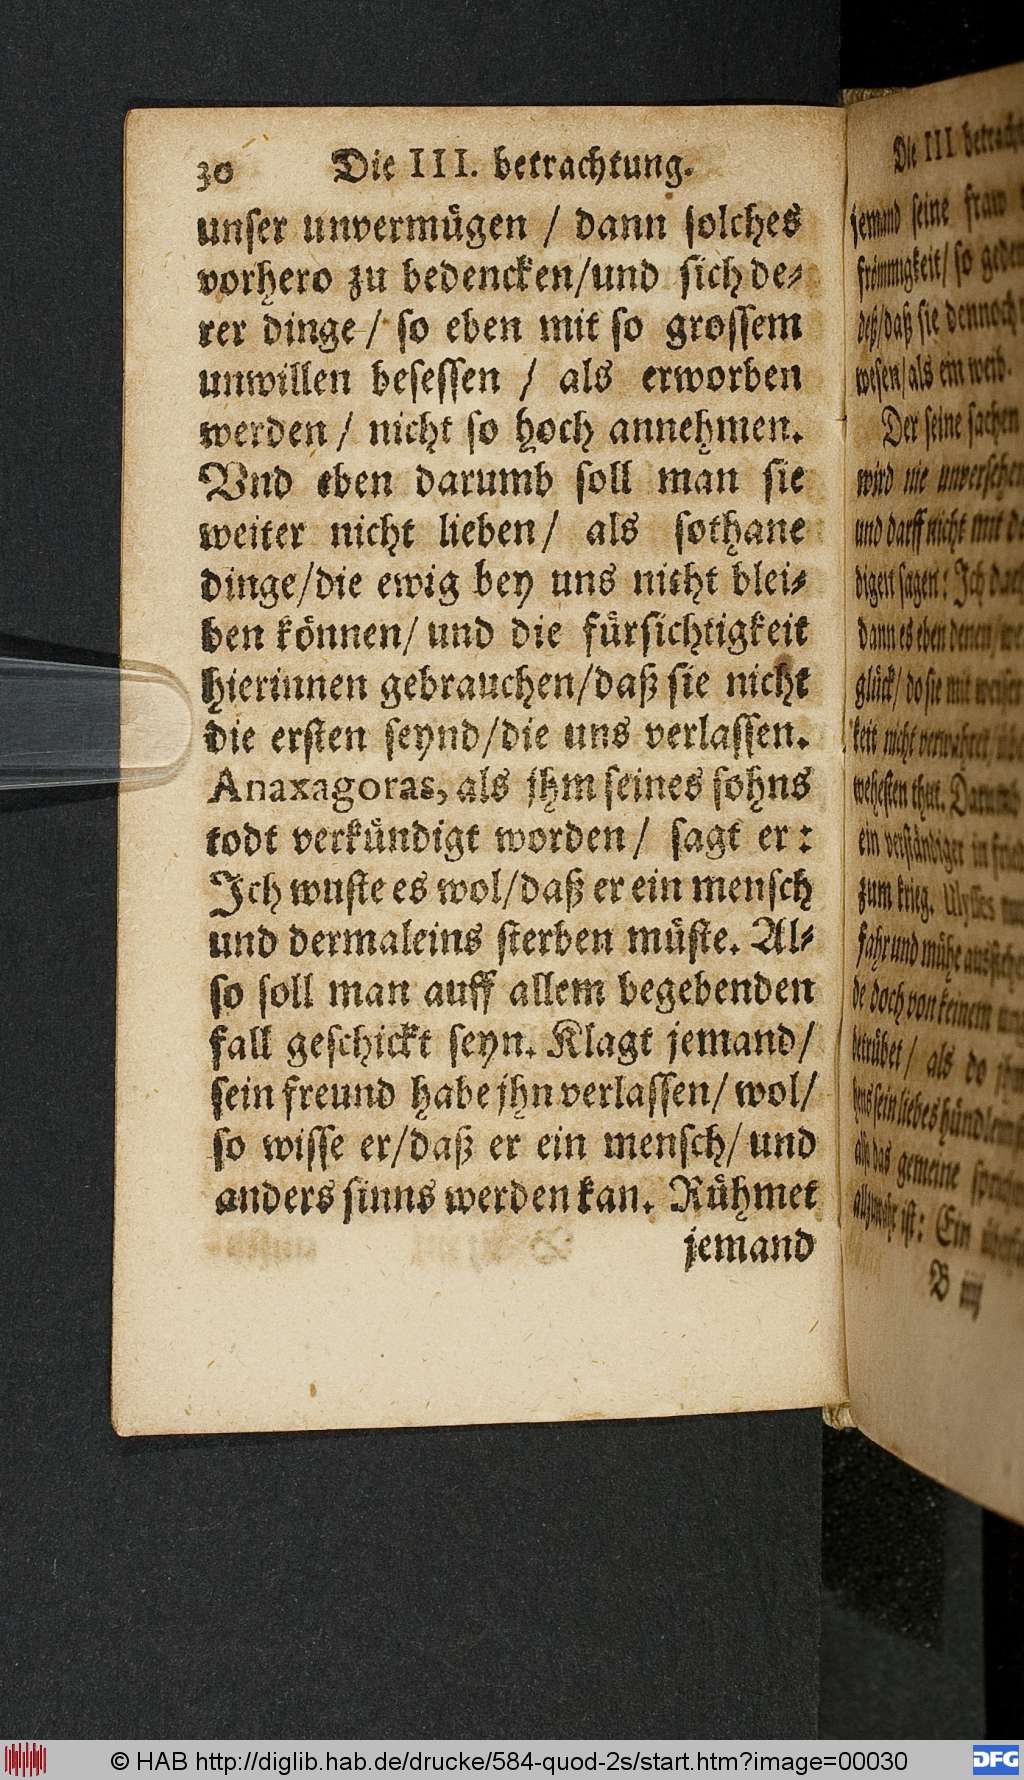 30 Die III. betrachtung.
unser unvermügen / dann solches
vorhero zu bedencken/und sich de-
rer dinge / so eben mit so grossem
unwillen besessen / als erworben
werden / nicht so hoch annehmen.
Vnd eben darumb soll man sie
weiter nicht lieben / als sothane
dinge/die ewig bey uns nicht blei-
ben können/ und die fürsichtigkeit
hierinnen gebrauchen/daß sie nicht
die ersten seynd/die uns verlassen.
Anaxagoras, als jhm seines sohns
todt verkündigt worden / sagt er:
Ich wuste es wol/daß er ein mensch
und dermaleins sterben müste. Al-
so soll man auff allem begebenden
fall geschickt seyn. Klagt jemand/
sein freund habe jhn verlassen/ wol/
so wisse er/daß er ein mensch/ und
anders sinns werden kan. Rühmet
jemand
Die III betracht
jemand seine fraw
frömmigkeit/ so geden
deß/daß sie dennoch
wesen/als ein weib.
Der seine sachen
wird nie unversehen
und darff nicht mit de
digen sagen: Ich dach
dann es eben denen/
glück/ do sie mit
keit nicht verwahret
wehesten thut. Darumb
ein verständiger in fried
zum krieg. Ulysses
fahr und mühe
de doch von keinem
betrübet / als do jhm
sein liebes hündlein
das gemeine sprich
ist: Ein
B iiij
© HAB http://diglib.hab.de/drucke/584-quod-2s/start.htm?image=00030
DFG